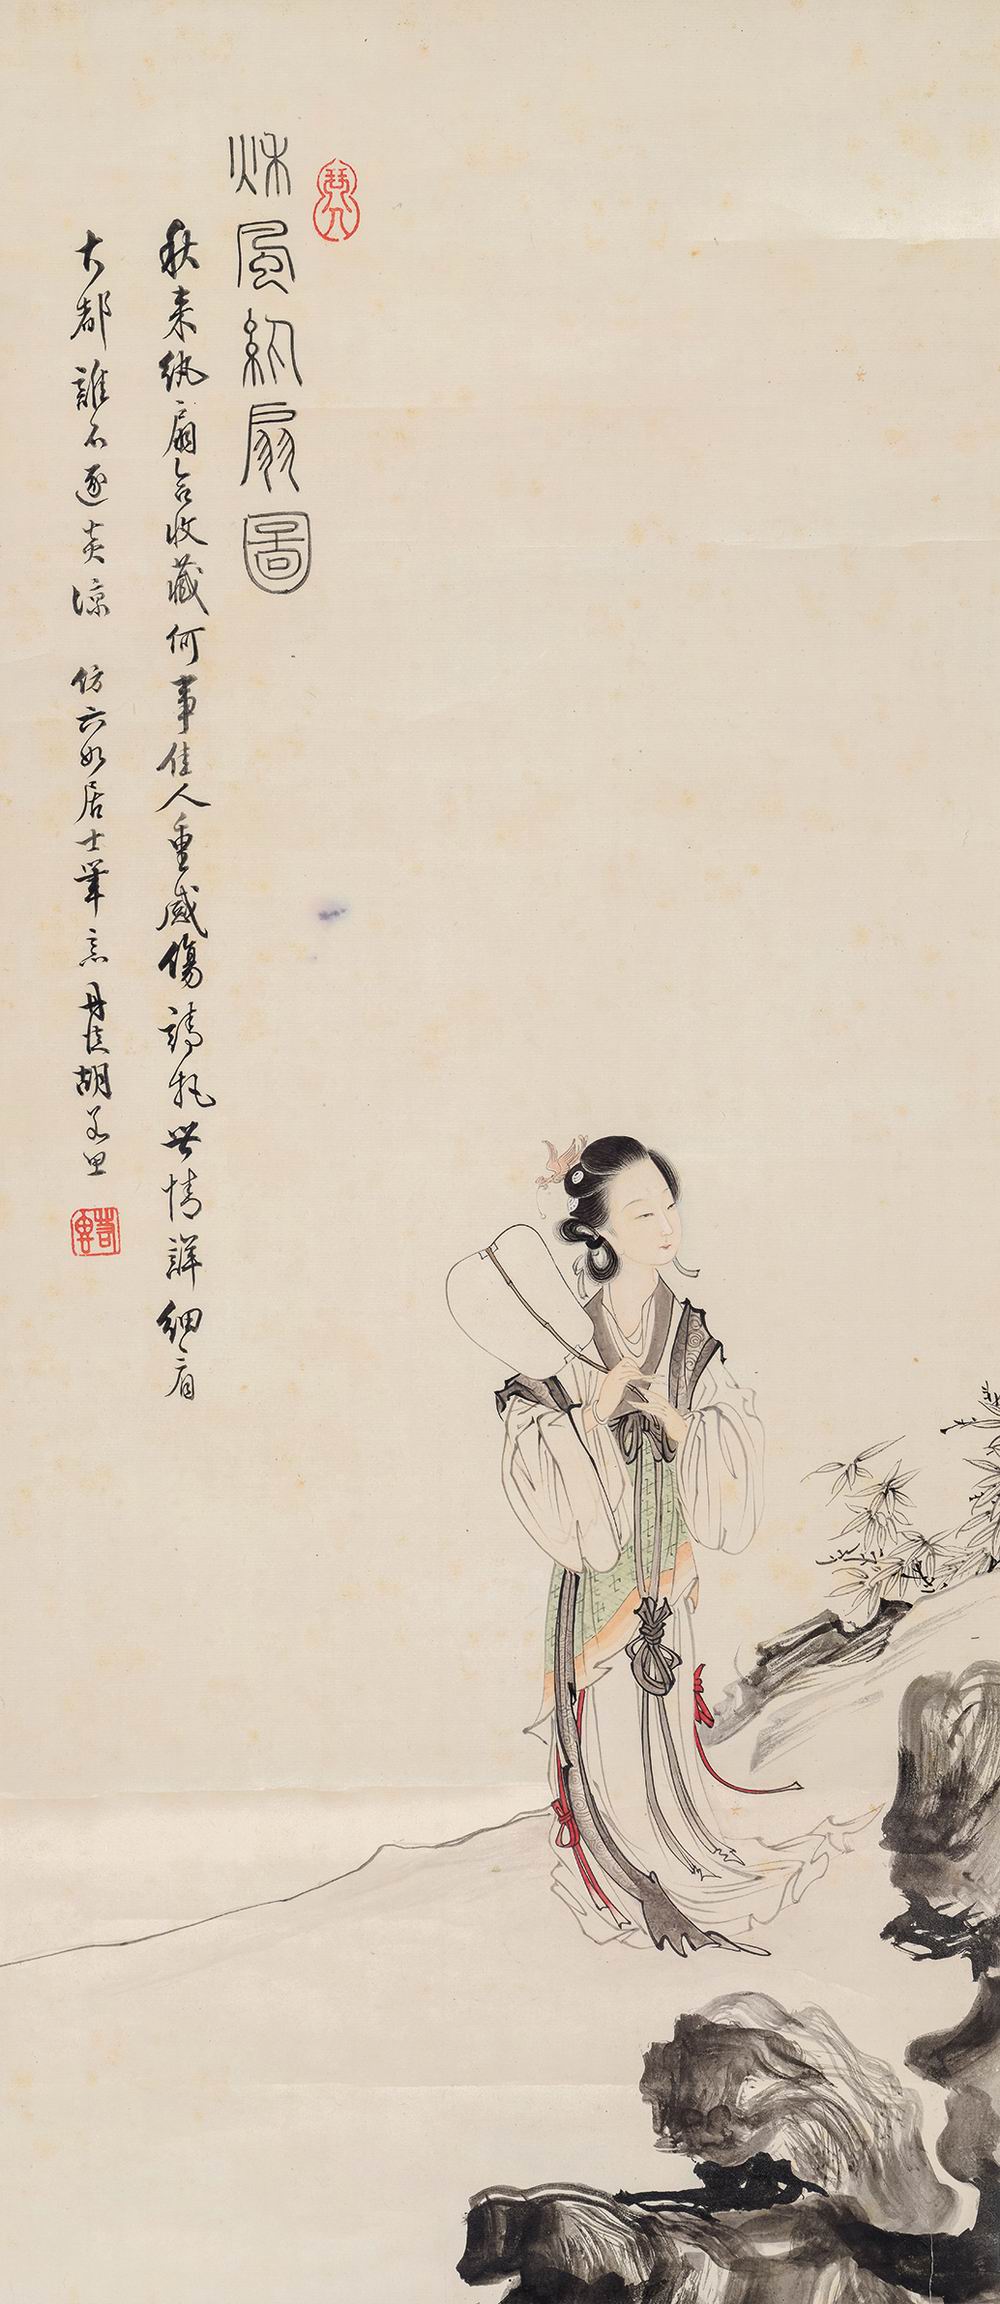 秌風紈扇圖
秋来紈扇合收藏何事佳人重感傷請把世情詳細看
大都誰不逐炎涼 仿六如居士筆意 丹 胡